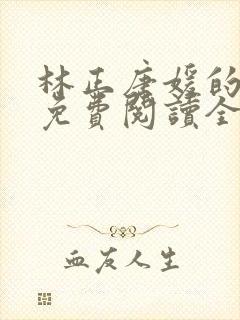 林正唐媛的
免費閱讀全
血友人生